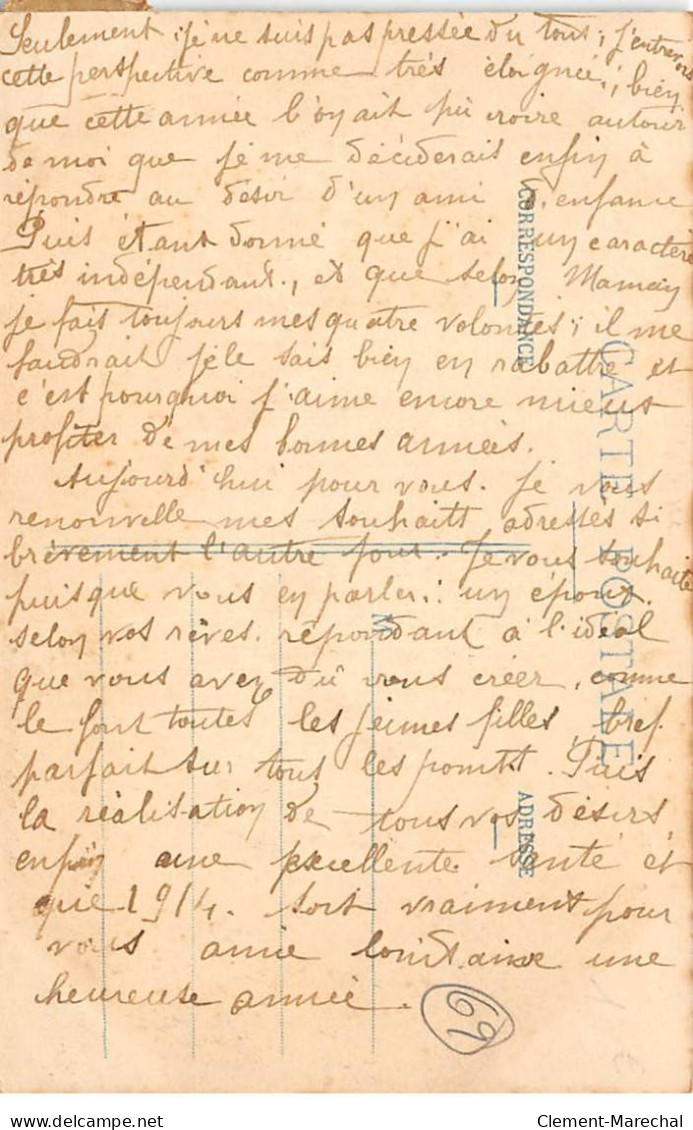 Seulement je ne suis pas pressée du tout, j'entrevois
cette perspective comme très éloignée, bien
que cette année l'oyait pu roire autour
de moi que je me déciderais enfin à
répondre au désir d'un ami d'enfance
Puis étant donné que j'ai un caractère
très indépendant, et que selon Maman
je fais toujours mes quatre volontés, il me
faudrait je le sais bien en rabattre et
c'est pourquoi j'aime encore mieux
profiter de mes bonnes années.
Aujourd'hui pour vous. Je vous
renouvelle mes souhaits adressés si
brèvement l'autre jour. Je vous souhaite
puisque vous en parlez : un époux
selon vos rêves, répondant à l'idéal
que vous avez dû vous créer, comme
le font toutes les jeunes filles, bref
parfait sur tous les points. Puis
la réalisation de tous vos désirs
enfin une excellente santé et
que 1914 soit vraiment pour
vous amie lointaine une
heureuse année.
69
CORRESPONDANCE
CARTE POSTALE
M
ADRESSE
delcampe.net
Clement-Marechal